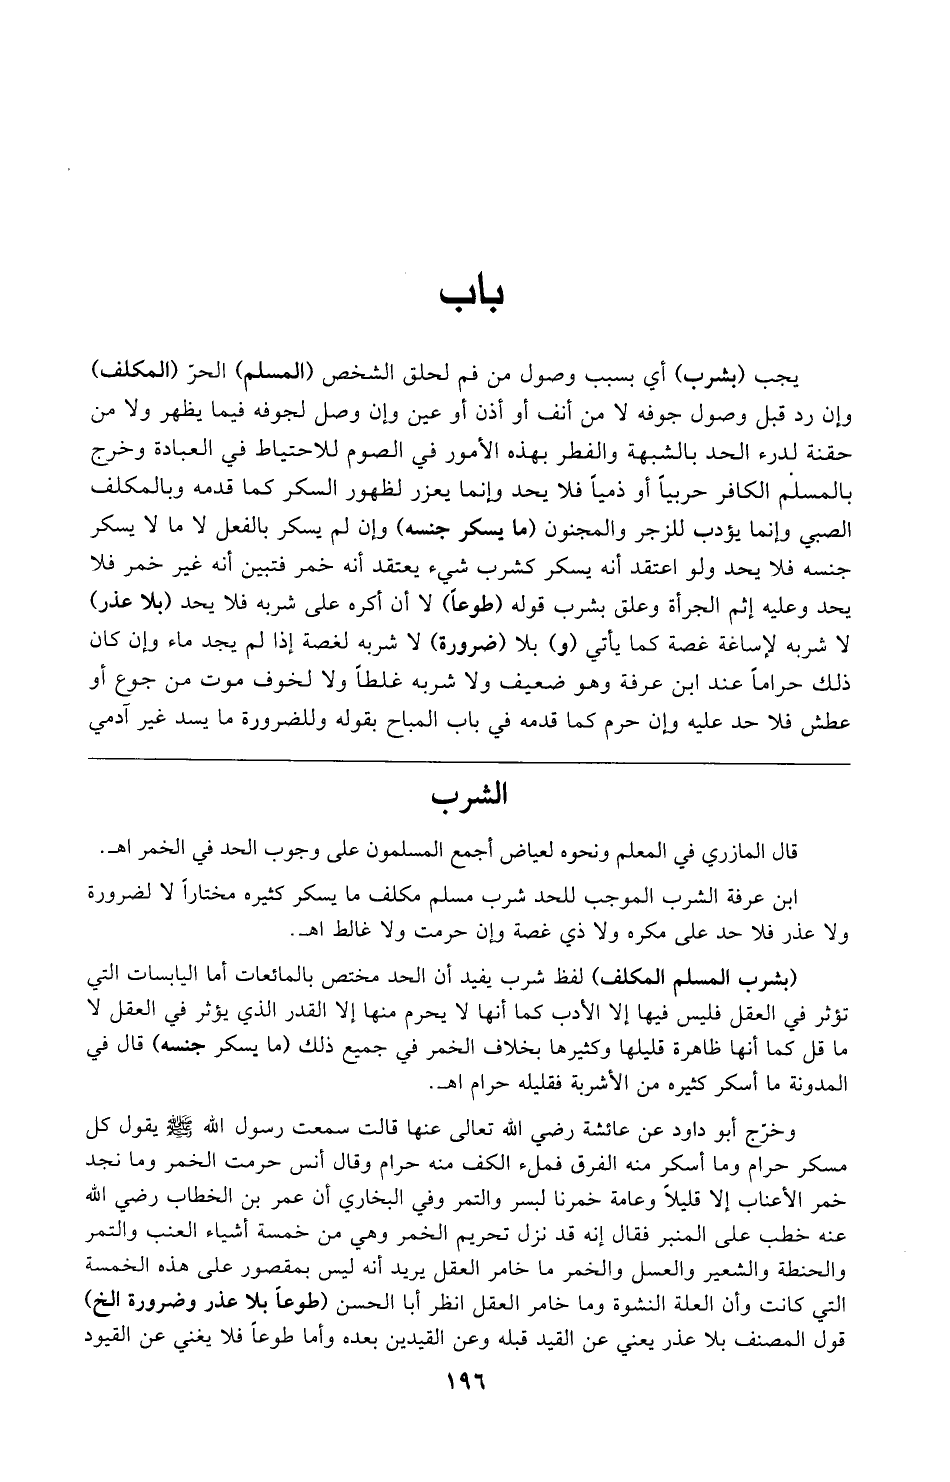 باب
يجب (بشرب) أي بسبب وصول من فم لحلق الشخص (المسلم) الحرّ (المكلف)
وإن رد قبل وصول جوفه لا من أنف أو أذن أو عين وإن وصل لجوفه فيما يظهر ولا من
حقنة لدرء الحد بالشبهة والفطر بهذه الأمور في الصوم للاحتياط في العبادة وخرج
بالمسلم الكافر حربياً أو ذمياً فلا يحد وإنما يعزر لظهور السكر كما قدمه وبالمكلف
الصبي وإنما يؤدب للزجر والمجنون (ما يسكر جنسه) وإن لم يسكر بالفعل لا ما لا يسكر
جنسه فلا يحد ولو اعتقد أنه يسكر كشرب شيء يعتقد أنه خمر فتبين أنه غير خمر فلا
يحد وعليه إثم الجرأة وعلق بشرب قوله (طوعاً) لا أن أكره على شربه فلا يحد (بلا عذر)
لا شربه لإساغة غصة كما يأتي (و) بلا (ضرورة) لا شربه لغصة إذا لم يجد ماء وإن كان
ذلك حراماً عند ابن عرفة وهو ضعيف ولا شربه غلطاً ولا لخوف موت من جوع أو
عطش فلا حد عليه وإن حرم كما قدمه في باب المباح بقوله وللضرورة ما يسد غير آدمي
الشرب
قال المازري في المعلم ونحوه لعياض أجمع المسلمون على وجوب الحد في الخمر اهـ.
ابن عرفة الشرب الموجب للحد شرب مسلم مكلف ما يسكر كثيره مختاراً لا لضرورة
ولا عذر فلا حد على مكره ولا ذي غصة وإن حرمت ولا غالط اهـ.
(بشرب المسلم المكلف) لفظ شرب يفيد أن الحد مختص بالمائعات أما اليابسات التي
تؤثر في العقل فليس فيها إلا الأدب كما أنها لا يحرم منها إلا القدر الذي يؤثر في العقل لا
ما قل كما أنها ظاهرة قليلها وكثيرها بخلاف الخمر في جميع ذلك (ما يسكر جنسه) قال في
المدونة ما أسكر كثيره من الأشربة فقليله حرام اهـ.
وخرّج أبو داود عن عائشة رضي الله تعالى عنها قالت سمعت رسول الله ﷺ يقول كل
مسكر حرام وما أسكر منه الفرق فملء الكف منه حرام وقال أنس حرمت الخمر وما نجد
خمر الأعناب إلا قليلاً وعامة خمرنا لبسر والتمر وفي البخاري أن عمر بن الخطاب رضي الله
عنه خطب على المنبر فقال إنه قد نزل تحريم الخمر وهي من خمسة أشياء العنب والتمر
والحنطة والشعير والعسل والخمر ما خامر العقل يريد أنه ليس بمقصور على هذه الخمسة
التي كانت وأن العلة النشوة وما خامر العقل انظر أبا الحسن (طوعاً بلا عذر وضرورة الخ)
قول المصنف بلا عذر يعني عن القيد قبله وعن القيدين بعده وأما طوعاً فلا يغني عن القيود
١٩٦